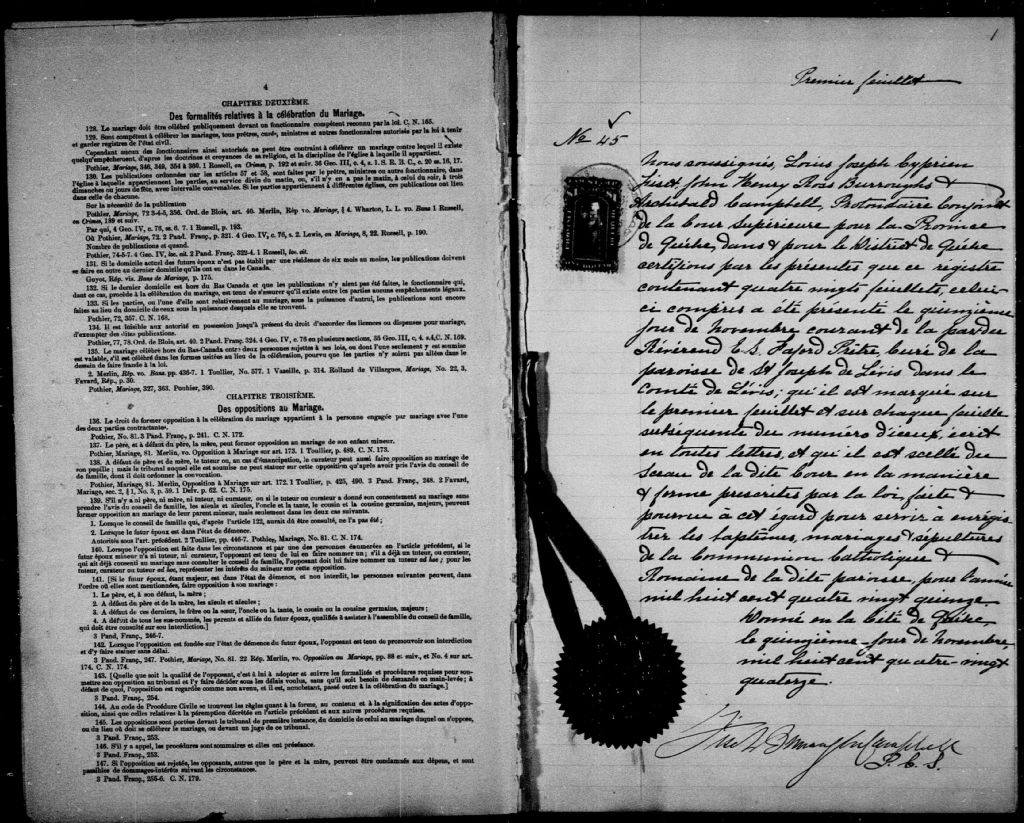 4
CHAPITRE DEUXIÈME.
Des formalités relatives à la célébration du Mariage.
128. Le mariage doit être célébré publiquement devant un fonctionnaire compétent reconnu par la loi. C. N. 165.
129. Sont compétent à célébrer les mariages, tous prêtres, curés, ministres et autres fonctionnaires autorisés par la loi à tenir
et garder registres de l'état civil.
Cependant aucun des fonctionnaires ainsi autorisés ne peut être contraint à célébrer un mariage contre lequel il existe
quelqu'empêchement, d'après les doctrines et croyances de sa religion, et la discipline de l'église à laquelle il appartient.
Pothier, Mariage, 346, 349, 354 à 360. 1 Russell, en Crimes, p. 192 et suiv. 36 Geo. III, c. 4, s. 1. S. R. B. C., c. 20 ss. 16, 17.
130. Les publications ordonnées par les articles 57 et 58, sont faites par le prêtre, ministre ou autre fonctionnaire, dans
l'église à laquelle appartiennent les parties, au service divin du matin, ou, s'il n'y en a pas le matin, à celui du soir, à trois
dimanches ou jours de fête, avec intervalle convenables. Si les parties appartiennent à différentes églises, ces publications ont lieu
dans celle de chacune.
Sur la nécessité de la publication
Pothier, Mariage, 72 3-4-5, 356. Ord. de Blois, art. 40. Merlin, Rép vo. Mariage, § 4. Wharton, L. L. vo. Bans 1 Russell,
en Crimes, 189 et suiv.
Par qui, 4 Geo. IV, c. 76, ss. 6. 7. 1 Russell, p. 193.
Où Pothier, Mariage, 72. 2 Pand. Franç., p. 321. 4 Geo. IV, c. 76, s. 2. Lewis, en Mariage, 8, 22. Russell, p. 190.
Nombre de publications et quand.
Pothier, 74-5-7. 4 Geo. IV, loc. cit. 2 Pand. Franç. 322-4. 1 Russell, loc. cit.
131. Si le domicile actuel des futurs époux n'est pas établi par une résidence de six mois au moins, les publications doivent
se faire en outre au dernier domicile qu'ils ont eu dans le Canada.
Guyot, Rép. vis. Bans de Mariage, p. 175.
132. Si le dernier domicile est hors du Bas Canada et que les publications n'y aient pas été faites, le fonctionnaire qui,
dans ce cas, procède à la célébration du mariage, est tenu de s'assurer qu'il existe entre les parties aucuns empêchements légaux.
133. Si les parties, ou l'une d'elle sont relativement au mariage, sous la puissance d'autrui, les publications sont encore
faites au lieu du domicile de ceux sous la puissance desquels elle se trouvent.
Pothier, 72, 357. C. N. 168.
134. Il est loisible aux autorité en possession jusqu'à présent du droit d'accorder des licences ou dispenses pour mariage,
d'exempter des dites publications.
Pothier, 77, 78. Ord. de Blois, art. 40. 2 Pand. Franç. 324. 4 Geo. IV, c. 76 en plusieurs sections, 36 Geo. III, c. 4. s.4, C. N. 169.
135. Le mariage célébré hors du Bas-Canada entre deux personnes sujettes à ses lois, ou dont l'une seulement y est soumise
est valable, s'il est célébré dans les formes usitées au lieu de la célébration, pourvu que les parties n'y soient pas allées dans le
dessein de faire fraude à la loi.
2. Merlin, Rép. vo. Bans. pp. 436-7. 1 Toullier, No. 577. 1 Vazeille, p. 314. Rolland de Villargues, Mariage, No. 22, 3,
Favard, Rép., p. 30.
Pothier, Mariage, 327, 363. Pothier, 390.
CHAPITRE TROISIÈME.
Des oppositions au Mariage.
136. Le droit de former opposition à la célébration du mariage appartient à la personne engagée par mariage avec l'une
des deux parties contractantes.
Pothier, No. 81. 3 Pand. Franç., p. 241. C. N. 172.
137. Le père, et à défaut du père, la mère, peut former opposition au mariage de son enfant mineur.
Pothier, Mariage, 81. Merlin, vo. Opposition à Mariage sur art. 173. 1 Toullier, p. 489. C. N. 173.
138. A défaut de père et de mère, le tuteur ou, au cas d'émancipation, le curateur peut aussi faire opposition au mariage de
son pupille; mais le tribunal auquel elle est soumise ne peut statuer sur cette opposition qu'après avoir pris l'avis du conseil de
famille, dont il doit ordonner la convocation.
Pothier, Mariage, 81. Merlin, Opposition à Mariage sur art. 172. 1 Toullier, p. 425, 490. 3 Pand. Franç., 248. 2 Favard,
Mariage, sec. 2, § 1, No. 3, p. 59. 1 Delv. p. 62. C. N. 175.
139. S'il n'y a ni père, ni mère, ni tuteur, ni curateur, on si le tuteur ou curateur a donné son consentement au mariage sans
prendre l'avis du conseil de famille, les aïeuls et aïeules, l'oncle et la tante, le cousin et la cousine germains, majeurs, peuvent
former opposition au mariage de leur parent mineur, mais seulement dans les deux cas suivants.
1. Lorsque le conseil de famille qui, d'après l'article 122, aurait dû être consulté, ne l'a pas été;
2. Lorsque le futur époux est dans l'état de démence.
Autorités sous l'art. précédent. 2 Toullier, pp. 446-7. Pothier, Mariage, No. 81. C. N. 174.
140. Lorsque l'opposition est faite dans les circonstances et par une des personnes énumérées en l'article précédent, si le
futur époux mineur n'a ni tuteur, ni curateur, l'opposant est tenu de lui en faire nommer un; s'il a déjà un tuteur, ou curateur,
qui ait déjà consenti au mariage sans consulter le conseil de famille, l'opposant doit lui faire nommer un tuteur ad hoc; pour les
tuteur, curateur ou tuteur ad hoc, représenter les intérêts du mineur sur cette opposition.
141. [Si le futur époux, étant majeur, est dans l'état de démence, et non interdit, les personnes suivantes peuvent, dans
l'ordre où elles sont mentionnées, faire opposition à son mariage:
1. Le père, et, à son défaut, la mère;
2. A défaut du père et de la mère, les aïeuls et aïeules;
3. A défaut de ces derniers, le frère ou la sœur, l'oncle ou la tante, le cousin ou la cousine germains, majeurs;
4. A défaut de tous les sus-nommés, les parents et alliés du futur époux, qualifiés à assister à l'assemblée du conseil de famille,
qui doit être consulté sur son interdiction.]
3 Pand, Franç., 246-7.
142. Lorsque l'opposition est fondée sur l'état de démence du futur époux, l'opposant est tenu de promouvoir son interdiction
et d'y faire statuer sans délai.
3 Pand. Franç., 247. Pothier, Mariage, No. 81. 22 Rép. Merlin, vo. Opposition au Mariage, pp. 88 et suiv., et No. 4 sur art.
174. C. N. 174.
143. [Quelque soit la qualité de l'opposant, c'est à lui à adopter et suivre les formalités et procédures requises pour sou-
mettre son opposition au tribunal et l'y faire décider sous les délais voulus, sans qu'il soit besoin de demande en main-levée; à
défaut de quoi, l'opposition est regardée comme non avenu, et il est, nonobstant, passé outre à la célébration du mariage.]
3 Pand. Franç., 254.
144. Au code de Procédure Civile se trouvent les règles quant à la forme, au contenu et à la signification des actes d'oppo-
sition, ainsi que celles relatives à la péremption décrétée en l'article précédent et aux autres procédures requises.
145. Les oppositions sont portées devant le tribunal de première instance, du domicile de celui au mariage duquel on s'oppose,
ou du lieu où doit se célébrer le mariage, ou devant un juge de ce tribunal.
3 Pand. Franç., 253.
146. S'il y a appel, les procédures sont sommaires et elles ont préséance.
3 Pand. Franç., 253.
147. Si l'opposition est rejetée, les opposants, autres que le père et la mère, peuvent être condamnés aux dépens, et sont
passibles de dommages-intérêts suivant les circonstances.
3 Pand. Franç., 255-6. C. N. 179.
1
Premier feuillet
No 45
Nous soussignés, Louis Joseph Cyprien
Fiset, John Henry Ross Burroughs &
Archibald Campbell, Protonotaire Conjoint
de la Cour Supérieure pour la Province
de Québec, dans & pour le District de Québec
certifions par les présentes que ce régistre
contenant quatre vingts feuillets, celui-
ci compris a été présenté le quinzième
jour de Novembre courant de la part du
Révérend E. S. Fafard Prêtre, Curé de la
paroisse de St Joseph de Lévis dans le
Comté de Lévis; qu'il est marqué sur
le premier feuillet et sur chaque feuille
subséquente du numéro d'iceux, écrit
en toutes lettres, et qu'il est scellé du
Sceau de la dite Cour en la manière
& forme prescrites par la loi, faite &
pourvue à cet égard pour servir à enregis-
trer les baptêmes, mariages & sépultures
de la Communion Catholique &
Romaine de la dite paroisse, pour l'année
mil huit cent quatre vingt quinze.
Donné en la Cité de Québec,
le quinzième jour de Novembre,
mil huit cent quatre-vingt
quatorze.
Fiset Burroughs Campbell
P. C. S.